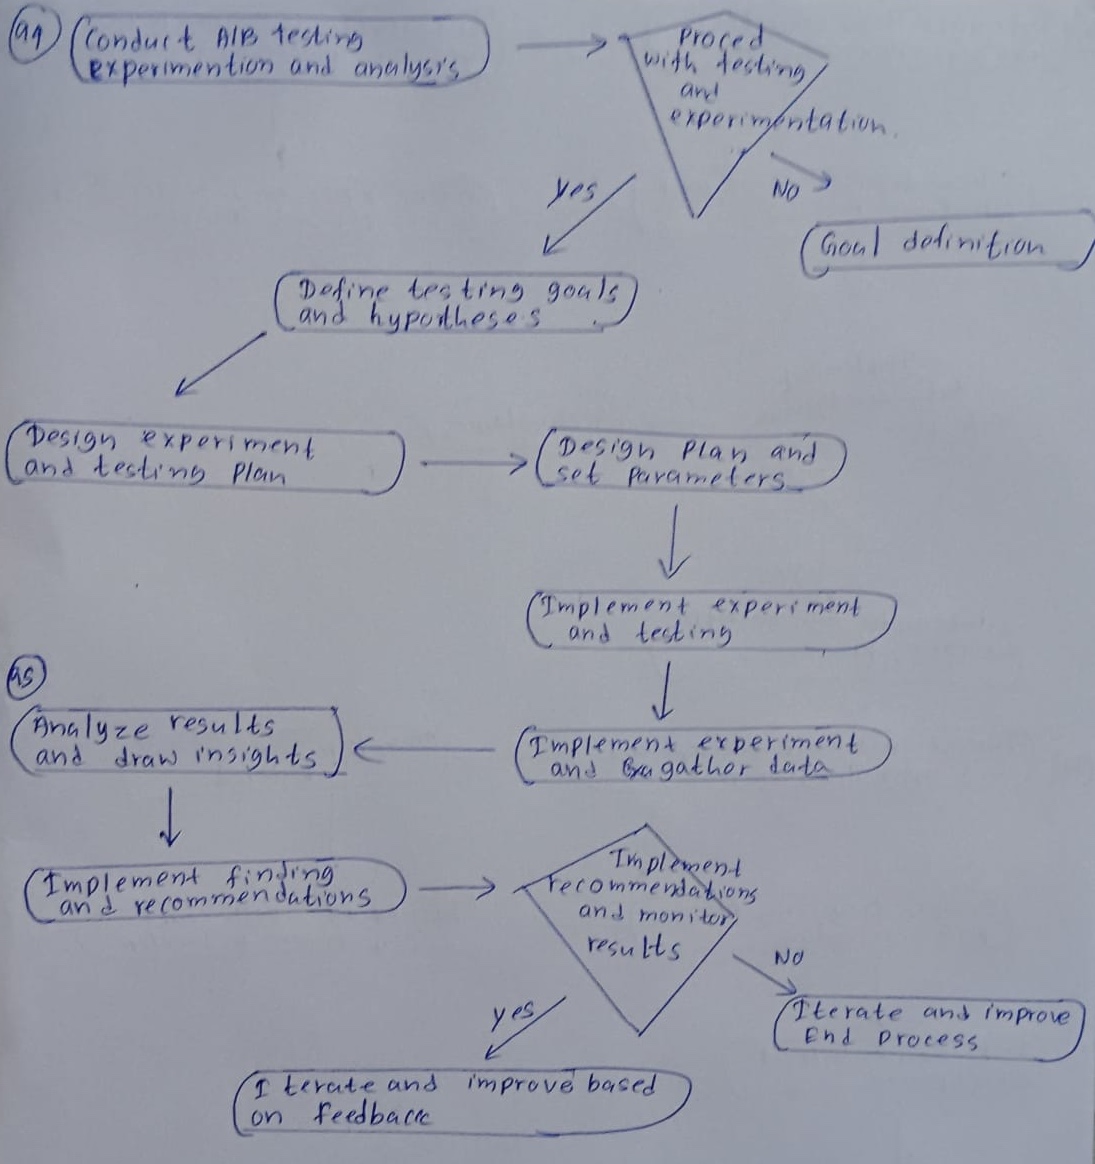 a4
Conduct A/B testing
experimention and analysis
Proced
with testing
and
experimentation.
Yes
NO
Goal definition
Define testing goals
and hypotheses
Design experiment
and testing Plan
Design Plan and
set Parameters
Implement experiment
and testing
a5
Analyze results
and draw insights
Implement experiment
and gather data
Implement finding
and recommendations
Implement
recommendations
and monitor
results
NO
yes
Iterate and improve
End Process
Iterate and improve based
on feedback